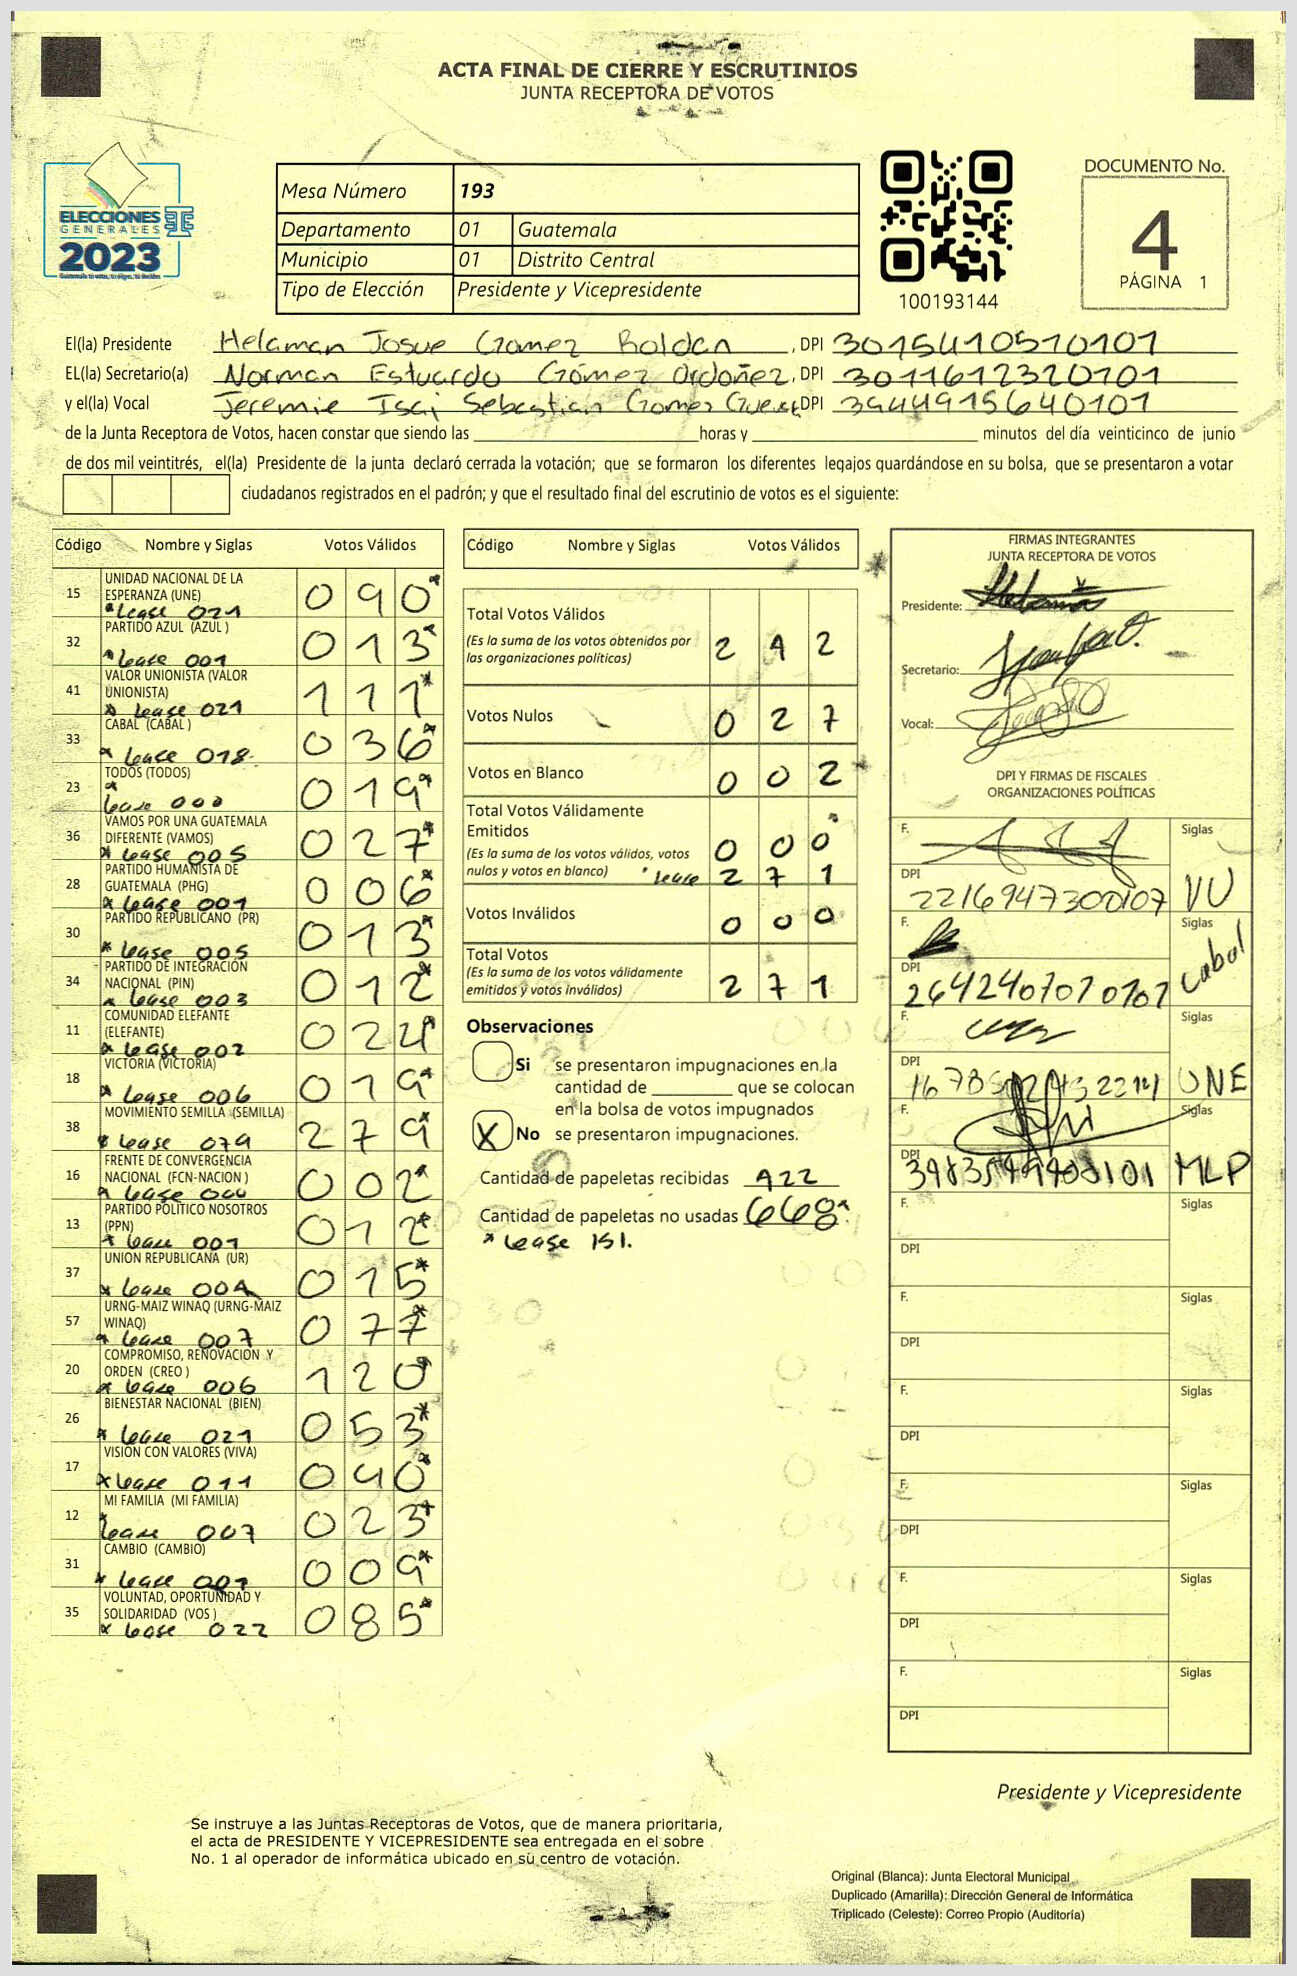 ACTA FINAL DE CIERRE Y ESCRUTINIOS
JUNTA RECEPTORA DE VOTOS
ELECCIONES
GENERALES
2023
Mesa Número 193
Departamento 01 Guatemala
Municipio 01 Distrito Central
Tipo de Elección Presidente y Vicepresidente
100193144
DOCUMENTO No.
4
PÁGINA 1
El(la) Presidente Helaman Josue Gomez Roldan, DPI 3015410510101
EL(la) Secretario(a) Norman Estuardo Gómez Ordoñez, DPI 3011612320101
y el(la) Vocal Jeremie Isai Sebastian Gomez DPI 3944915640101
de la Junta Receptora de Votos, hacen constar que siendo las horas y minutos del día veinticinco de junio
de dos mil veintitrés, el(la) Presidente de la junta declaró cerrada la votación; que se formaron los diferentes legajos quardándose en su bolsa, que se presentaron a votar
ciudadanos registrados en el padrón; y que el resultado final del escrutinio de votos es el siguiente:
Código Nombre y Siglas Votos Válidos
15 UNIDAD NACIONAL DE LA
ESPERANZA (UNE) 090*
*Lease 021
32 PARTIDO AZUL (AZUL ) 013*
*Lease 001
41 VALOR UNIONISTA (VALOR
UNIONISTA) 111*
* Lease 021
33 CABAL (CABAL ) 036*
* Lease 018.
23 TODOS (TODOS) 019*
*
Lease 000
36 VAMOS POR UNA GUATEMALA
DIFERENTE (VAMOS) 027*
* Lease 005
28 PARTIDO HUMANISTA DE
GUATEMALA (PHG) 006*
* Lease 001
30 PARTIDO REPUBLICANO (PR) 013*
* Lease 005
34 PARTIDO DE INTEGRACIÓN
NACIONAL (PIN) 012*
* Lease 003
11 COMUNIDAD ELEFANTE
(ELEFANTE) 024*
* Lease 002
18 VICTORIA (VICTORIA) 019*
* Lease 006
38 MOVIMIENTO SEMILLA (SEMILLA) 279*
* Lease 079
16 FRENTE DE CONVERGENCIA
NACIONAL (FCN-NACION ) 002*
* Lease 000
13 PARTIDO POLÍTICO NOSOTROS
(PPN) 012*
* Lease 001
37 UNION REPUBLICANA (UR) 015*
* Lease 004
57 URNG-MAIZ WINAQ (URNG-MAIZ
WINAQ) 077*
* Lease 007
20 COMPROMISO, RENOVACION Y
ORDEN (CREO ) 120*
* Lease 006
26 BIENESTAR NACIONAL (BIEN) 053*
* Lease 021
17 VISION CON VALORES (VIVA) 040*
* Lease 011
12 MI FAMILIA (MI FAMILIA) 023*
* Lease 007
31 CAMBIO (CAMBIO) 009*
* Lease 001
35 VOLUNTAD, OPORTUNIDAD Y
SOLIDARIDAD (VOS ) 085*
* Lease 022
Código Nombre y Siglas Votos Válidos
Total Votos Válidos
(Es la suma de los votos obtenidos por
las organizaciones políticas) 242
Votos Nulos 027
Votos en Blanco 002
Total Votos Válidamente
Emitidos
(Es la suma de los votos válidos, votos 000*
nulos y votos en blanco) * Lease 271
Votos Inválidos 000
Total Votos
(Es la suma de los votos válidamente
emitidos y votos inválidos) 271
Observaciones
Si se presentaron impugnaciones en la
cantidad de que se colocan
en la bolsa de votos impugnados
X No se presentaron impugnaciones.
Cantidad de papeletas recibidas 422
Cantidad de papeletas no usadas 668*
* Lease 151.
FIRMAS INTEGRANTES
JUNTA RECEPTORA DE VOTOS
Presidente:
Secretario:
Vocal:
DPI Y FIRMAS DE FISCALES
ORGANIZACIONES POLÍTICAS
F. Siglas
DPI 2216947300107 VU
F. Siglas
DPI 2642407070101 Cabal
F. Siglas
DPI UNE
F. Siglas
DPI MLP
F. Siglas
DPI
F. Siglas
DPI
F. Siglas
DPI
F. Siglas
DPI
F. Siglas
DPI
F. Siglas
DPI
Presidente y Vicepresidente
Se instruye a las Juntas Receptoras de Votos, que de manera prioritaria,
el acta de PRESIDENTE Y VICEPRESIDENTE sea entregada en el sobre
No. 1 al operador de informática ubicado en su centro de votación.
Original (Blanca): Junta Electoral Municipal
Duplicado (Amarilla): Dirección General de Informática
Triplicado (Celeste): Correo Propio (Auditoría)